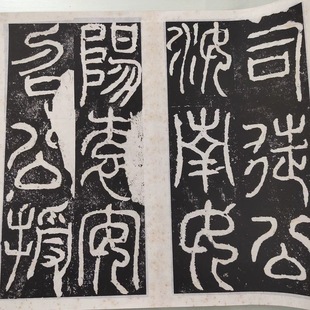 司徒公
汝南女
陽袁安
召公授